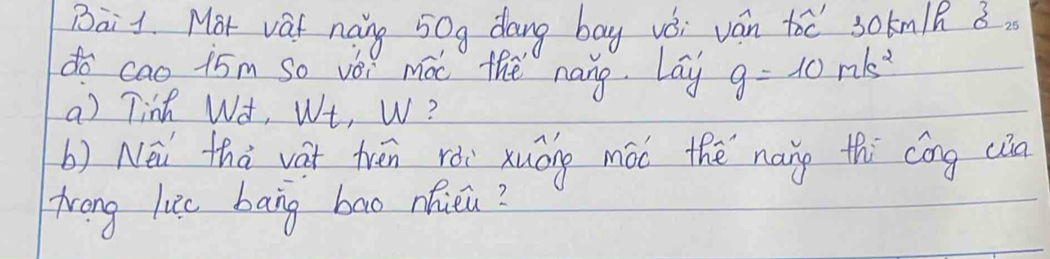 Bài 1. Một vật nặng 50g đang bay với vận tốc 30km/h ở
độ cao 15m so với mốc thế năng. Lấy g = 10 m/s²
a) Tính Wđ, Wt, W?
b) Nếu thả vật trên rơi xuống mốc thế năng thì công của
trọng lực bằng bao nhiêu?